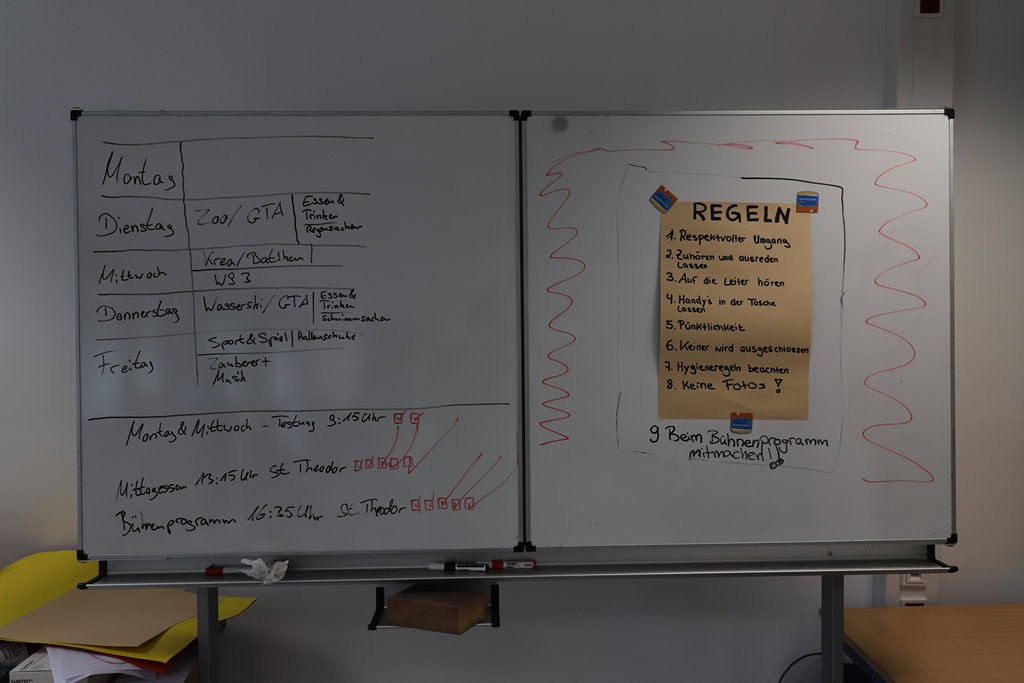 Montag
Dienstag
Zoo/GTA
Essen &
Trinken
Regensachen
Mittwoch
Krea/Batiken
WS 3
Donnerstag
Wasserski/GTA
Essen &
Trinken
Schwimmsachen
Freitag
Sport & Spiel
Hallenschuhe
Zauberer +
Musik
Montag & Mittwoch - Testung 9:15 Uhr
Mittagessen 13:15 Uhr St. Theodor
Bühnenprogramm 16:35 Uhr St. Theodor
REGELN
1. Respektvoller Umgang
2. Zuhören und ausreden
Lassen
3. Auf die Leiter hören
4. Handy's in der Tasche
Lassen
5. Pünktlichkeit
6. Keiner wird ausgeschlossen
7. Hygieneregeln beachten
8. Keine Fotos !
9 Beim Bühnenprogramm
mitmachen!!